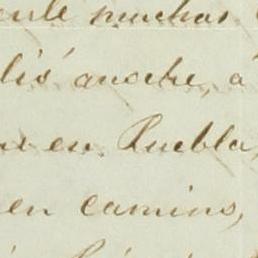 muchas
lis anoche, á
en Puebla,
en camino,